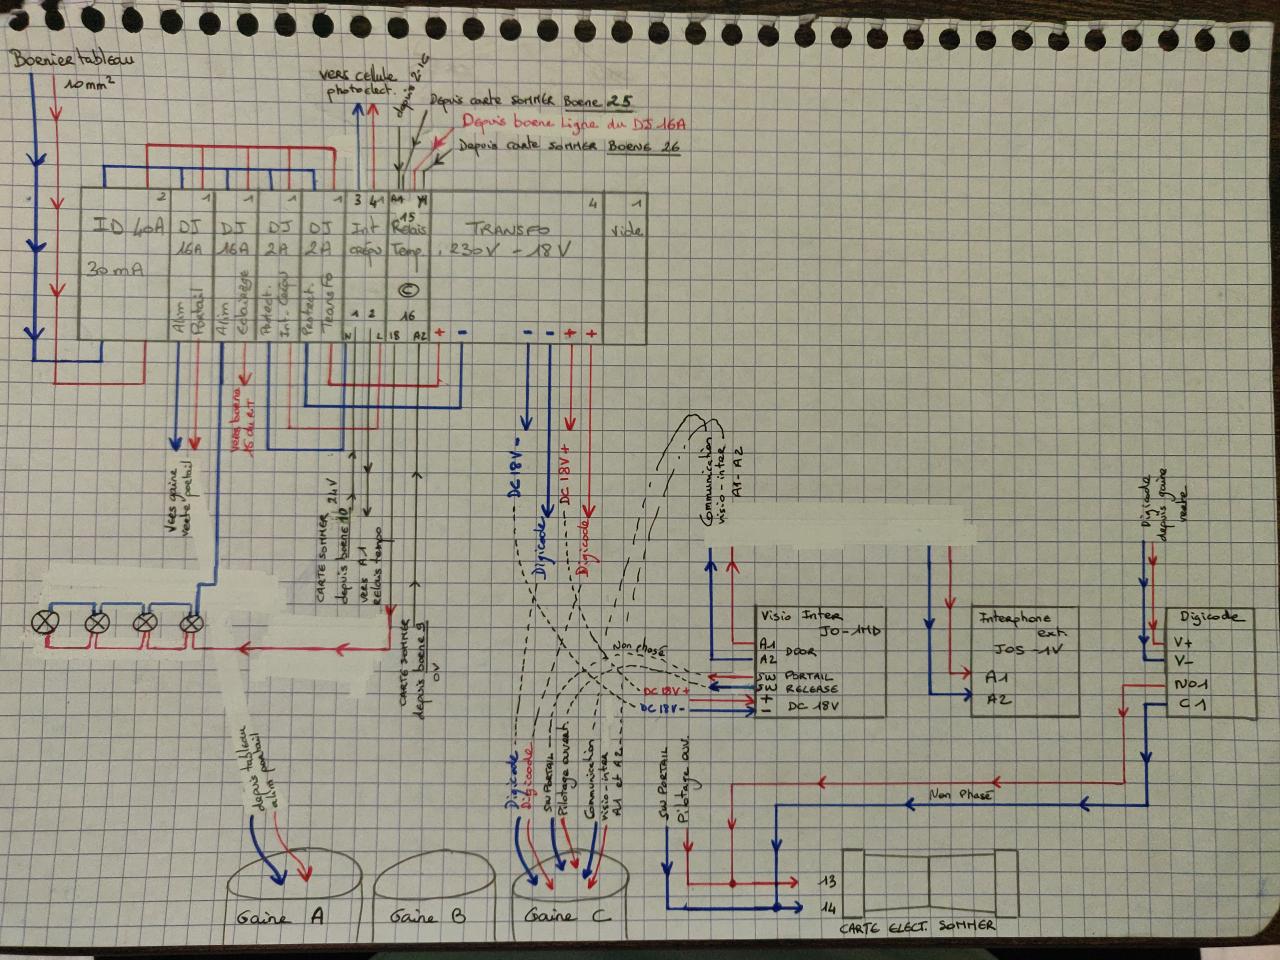 Bornier tableau
10mm²
vers cellule
photoélect.
depuis 2-16
Depuis carte SOMMER Borne 25
Depuis borne Ligne du DJ 16A
Depuis carte SOMMER BORNE 26
2
1
1
1
1
3
4
A1
Y1
4
1
ID 40A
30mA
DJ
16A
Alim
Portail
DJ
16A
Alim
Eclairage
DJ
2A
Protect.
Int. Crépu
DJ
2A
Protect.
Transfo
Int
crépu
1
2
N
L
15
Relais
Temp.
©
16
18
A2
TRANSFO
230V - 18V
+
-
-
-
+
+
vide
vers borne
15 du RT
Vers gaine
verte portail
CARTE SOMMER 24V
depuis borne 10
vers A1
RELAIS tempo
CARTE SOMMER
depuis borne 9
0V
DC 18V -
Digicode
DC 18V +
Digicode
Communication
visio-inter
A1-A2
Digicode
depuis gaine
verte
Visio Inter
JO-1MD
A1
A2
DOOR
SW PORTAIL
SW RELEASE
+
-
DC 18V
Non phasé
DC 18V+
DC 18V-
Interphone
ext
JOS-1V
A1
A2
Digicode
V+
V-
No1
C1
depuis tableau
alim portail
Digicode
Digicode
SW PORTAIL
Pilotage ouvert.
Communication
visio-inter
A1 et A2
SW PORTAIL
Pilotage ouv.
Non Phasé
13
14
CARTE ELECT. SOMMER
Gaine A
Gaine B
Gaine C